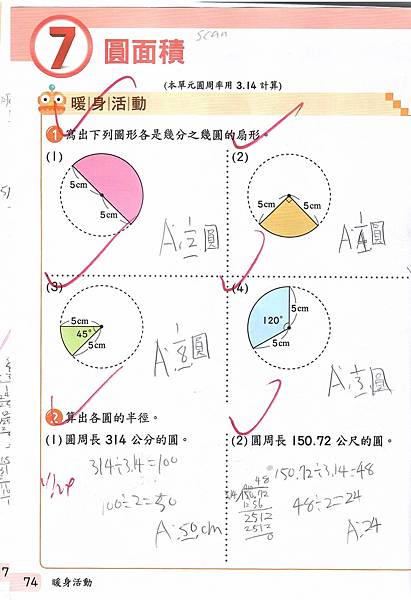 scan
7 圓面積
(本單元圓周率用 3.14 計算)
暖身活動
1 寫出下列圖形各是幾分之幾圓的扇形。
(1)
5cm
5cm
A:1/2圓
(2)
5cm
5cm
A:1/4圓
(3)
5cm
45°
5cm
A:1/8圓
(4)
120°
5cm
5cm
A:1/3圓
2 算出各圓的半徑。
(1) 圓周長 314 公分的圓。
314÷3.14=100
100÷2=50
A:50cm
(2) 圓周長 150.72 公尺的圓。
150.72÷3.14=48
48
3.14 150.72
1256
2512
2512
0
48÷2=24
A:24
74 暖身活動